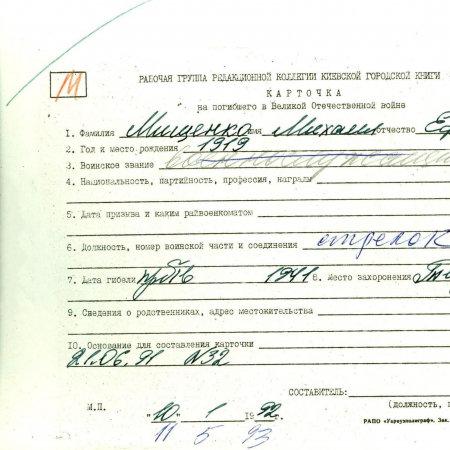 М
РАБОЧАЯ ГРУППА РЕДАКЦИОННОЙ КОЛЛЕГИИ КИЕВСКОЙ ГОРОДСКОЙ КНИГИ
КАРТОЧКА
на погибшего в Великой Отечественной войне
1. Фамилия Мищенко имя Михаил отчество Еф
2. Год и место рождения 1919
3. Воинское звание военнослужащий
4. Национальность, партийность, профессия, награды
5. Дата призыва и каким райвоенкоматом
6. Должность, номер воинской части и соединения стрелок
7. Дата гибели 1941 8. Место захоронения
9. Сведения о родственниках, адрес местожительства
10. Основание для составления карточки
21.06.91 N32
СОСТАВИТЕЛЬ:
(должность,
М.П. "10" 1 1992.
РАПО «Укрвузполиграф». Зак.
11 5 93